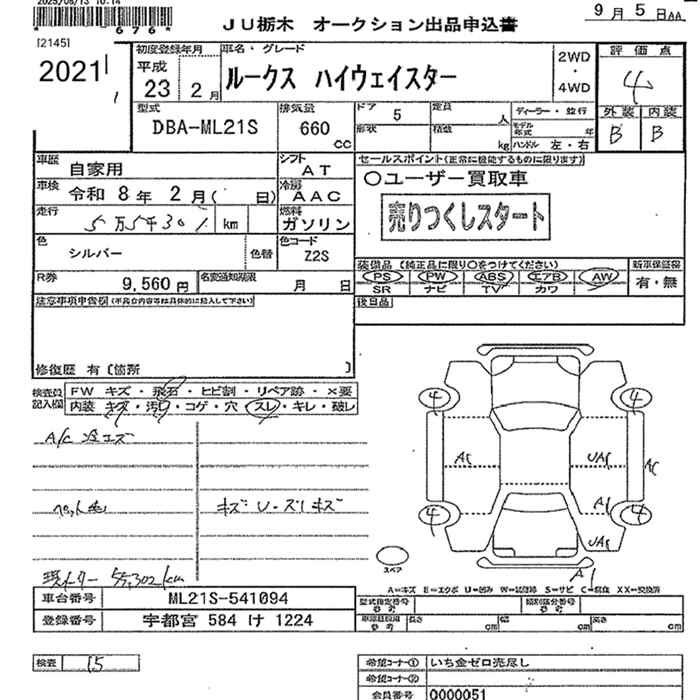 2025/08/13 10:14
*676*
JU栃木 オークション出品申込書
9月 5日AA
[2145]
2021
初度登録年月 車名・グレード
平成 23 2月
ルークス ハイウェイスター
2WD・4WD
評価点
4
外装 内装
B B
型式 DBA-ML21S
排気量 660 CC
ドア 5
形状
定員 人
積載 kg
ディーラー・並行
モデル年式 年
ハンドル 左・右
車歴 自家用
シフト AT
車検 令和 8年 2月( 日)
冷房 AAC
走行 km
燃料 ガソリン
色 シルバー 色替
色コード Z2S
R券 9,560 円
名変通知期限 月 日
セールスポイント(正常に機能するものに限ります)
○ユーザー買取車
売りつくしスタート
装備品(純正品に限り○をつけてください)
PS PW ABS エアB AW
SR ナビ TV カワ
新車保証書
有・無
後日品
注意事項申告欄(不具合内容等は具体的に記入して下さい)
修復歴 有〔箇所 〕
検査員記入欄
FW キズ・飛石・ヒビ割・リペア跡・×要
内装 キズ・汚れ・コゲ・穴・スレ・キレ・破し
キズ U・ズレキズ
4 4
A1 UA1 A1
A1
4 4
UA1
スペア
A1
A=キズ E=エクボ U=凹み W=補修跡 S=サビ C=腐食 XX=交換済
車台番号 ML21S-541094
登録番号 宇都宮 584 け 1224
型式指定番号 参考
類別区分番号 参考
長さ cm 幅 cm 高さ cm
検査 15
希望コーナー① いち金ゼロ売尽し
希望コーナー②
会員番号 0000051